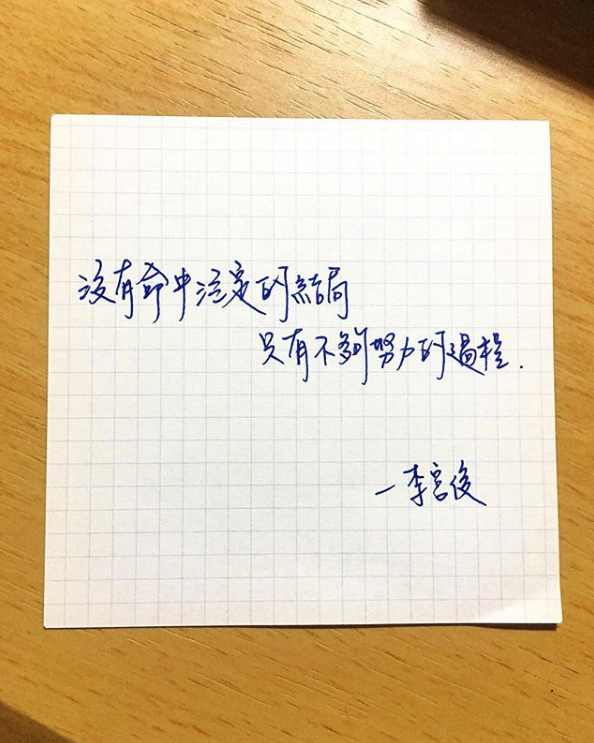 沒有命中注定的結局
只有不夠努力的過程.
—李宮俊